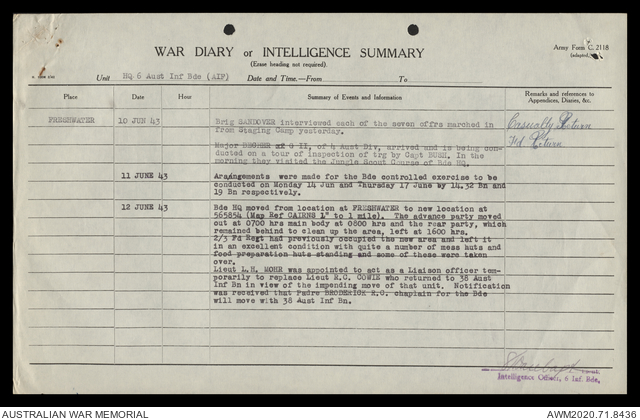 WAR DIARY or INTELLIGENCE SUMMARY
(Erase heading not required).
Army Form C. 2118
(adapted)
Unit HQ 6 Aust Inf Bde (AIF) Date and Time.—From To
Place Date Hour Summary of Events and Information Remarks and references to Appendices, Diaries, &c.
FRESHWATER 10 JUN 43 Brig SANDOVER interviewed each of the seven offrs marched in
from Staging Camp yesterday.
Casualty Return
Fd Return
Major of G II, of 4 Aust Div, arrived and is being con-
ducted on a tour of inspection of trg by Capt BUSH. In the
morning they visited the Jungle Scout Course of Bde HQ.
11 JUNE 43 Arrangements were made for the Bde controlled exercise to be
conducted on Monday 14 Jun and Thursday 17 June by 14.32 Bn and
19 Bn respectively.
12 JUNE 43 Bde HQ moved from location at FRESHWATER to new location at
565854 (Map Ref CAIRNS 1" to 1 mile). The advance party moved
out at 0700 hrs main body at 0800 hrs and the rear party, which
remained behind to clean up the area, left at 1600 hrs.
2/3 Fd Regt had previously occupied the new area and left it
in an excellent condition with quite a number of mess huts and
food preparation huts standing and some of these were taken
over.
Lieut L.H. MOHR was appointed to act as a Liaison officer tem-
porarily to replace Lieut R.G. COWIE who returned to 38 Aust
Inf Bn in view of the impending move of that unit. Notification
was received that Padre BRODERICK R.C. chaplain for the Bde
will move with 38 Aust Inf Bn.
Capt
Intelligence Officer, 6 Inf. Bde.
AUSTRALIAN WAR MEMORIAL AWM2020.71.8436